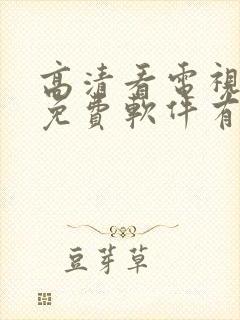 高清看電視
免費軟件有
豆芽草